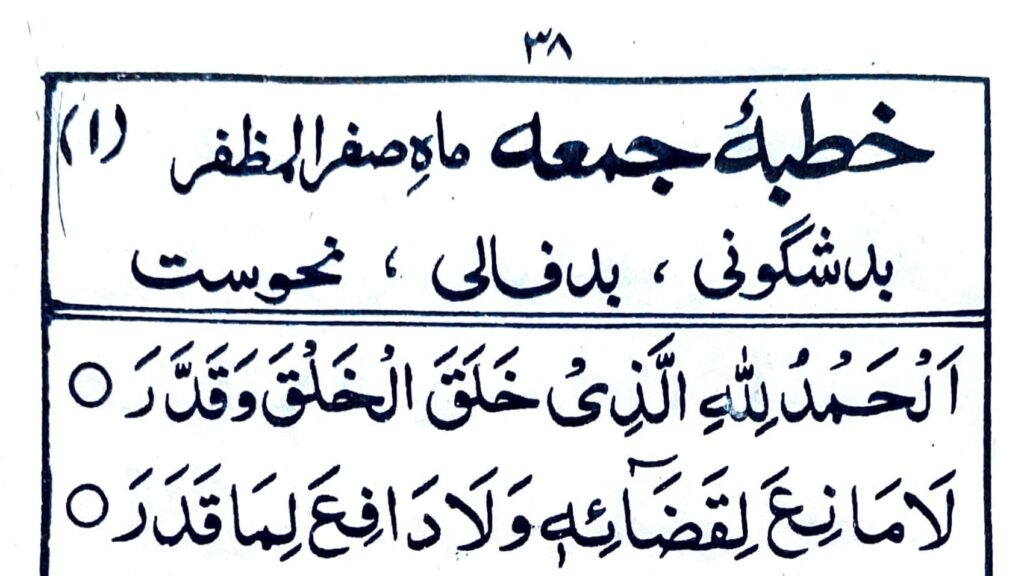 ۳۸
خطبۂ جمعہ ماہِ صفر المظفر (۱)
بدشگونی ، بدفالی ، نحوست
اَلْحَمْدُ لِلّٰهِ الَّذِیْ خَلَقَ الْخَلْقَ وَقَدَّرَ ○
لَا مَانِعَ لِقَضَآئِهٖ وَلَا دَافِعَ لِمَا قَدَرَ ○